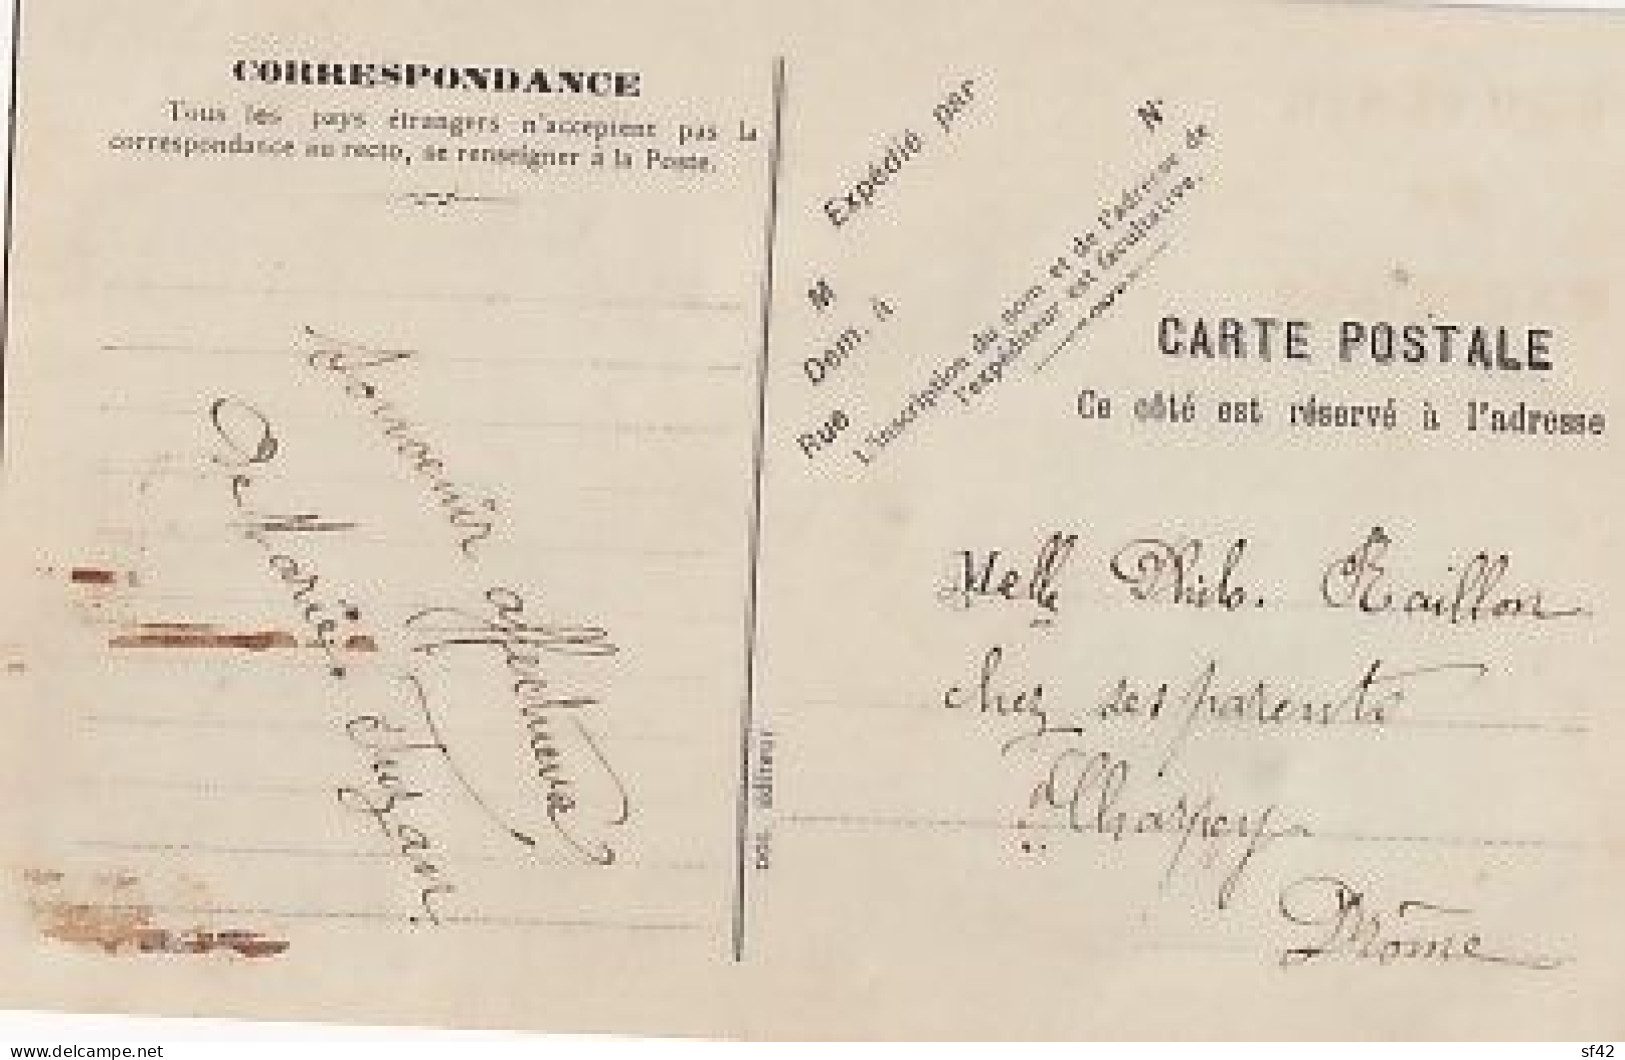 CORRESPONDANCE
Tous les pays étrangers n'acceptent pas la
correspondance au recto, se renseigner à la Poste.
Souvenir affectueux
De Marie
Expédié par
N°
M
Dom. à
Rue
L'inscription du nom et de l'adresse de
l'expéditeur est facultative.
CARTE POSTALE
Ce côté est réservé à l'adresse
Melle Philo. Raillon
chez ses parents
Charpey
Drôme
éditeur
delcampe.net
sf42